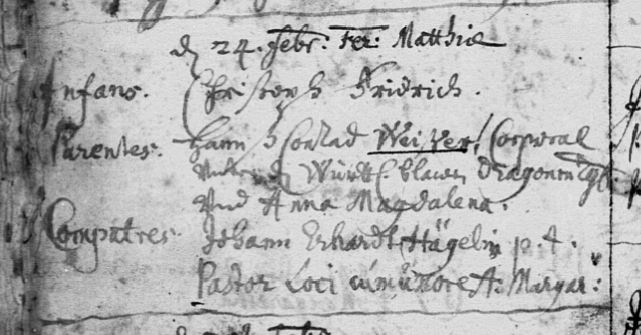 d. 24. Febr: Fer: Matthiæ
Infans. Christoph Fridrich.
Parentes. Hannß Conrad Weiser, Corporal
Unter d. Württ. blawen Dragonern
Und Anna Magdalena.
Compatres. Johann Erhardt Hägelin p. t.
Pastor Loci cum uxore A: Margar: